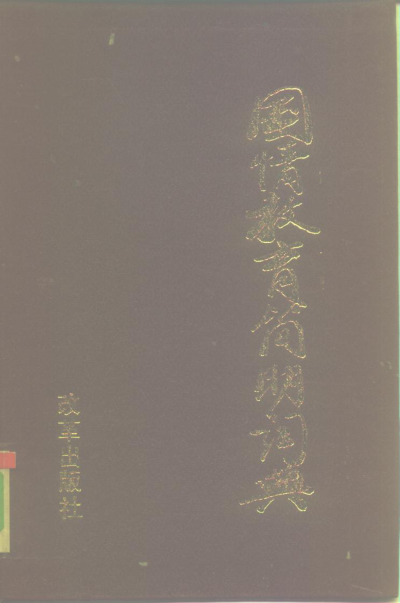 国情教育简明词典
改革出版社